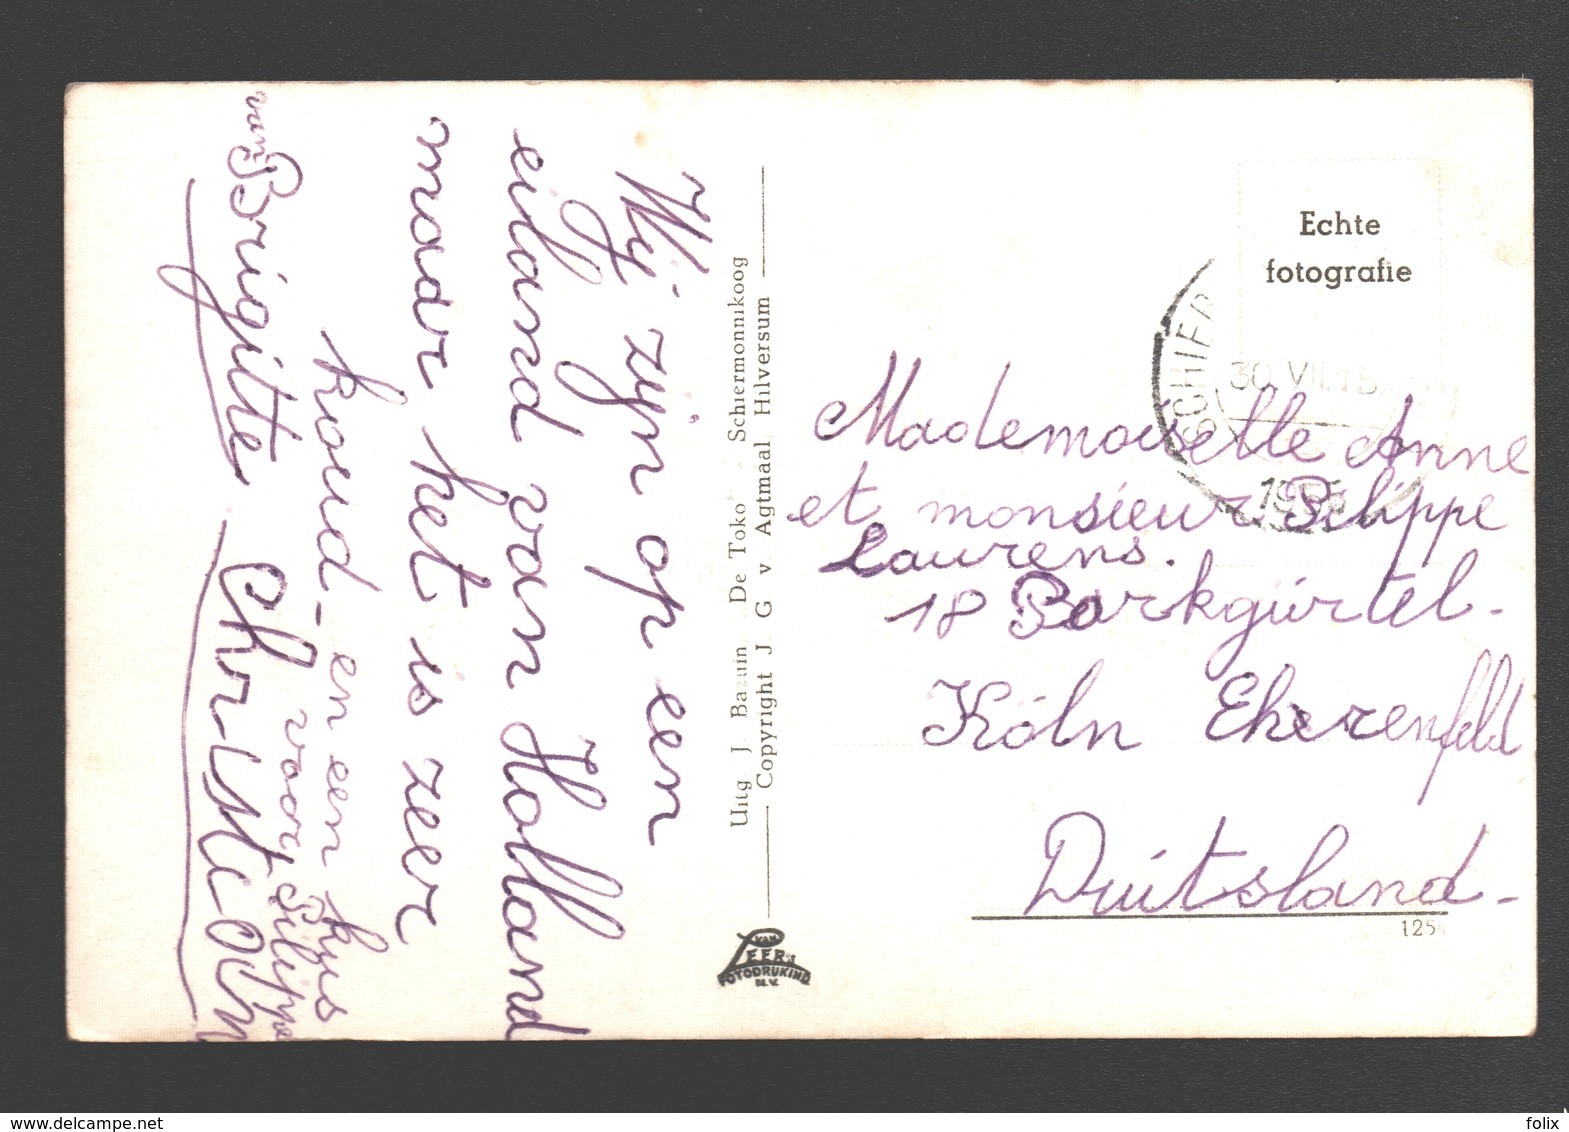 Wij zijn op een
eiland van Holland
maar het is zeer
koud - en een kus
voor Pilippe
van Brigitte Christiaan
Uitg J Bazuin De Toko Schiermonnikoog
Copyright J G v Agtmaal Hilversum
VAN
LEER'S
FOTODRUKIND
N.V.
Echte
fotografie
SCHIER
30 VII.15
1955
Mademoiselle Anne
et monsieur Pilippe
Laurens.
18 Parkgürtel -
Köln Eherenfeld
Duitsland -
125
felix
www.delcampe.net